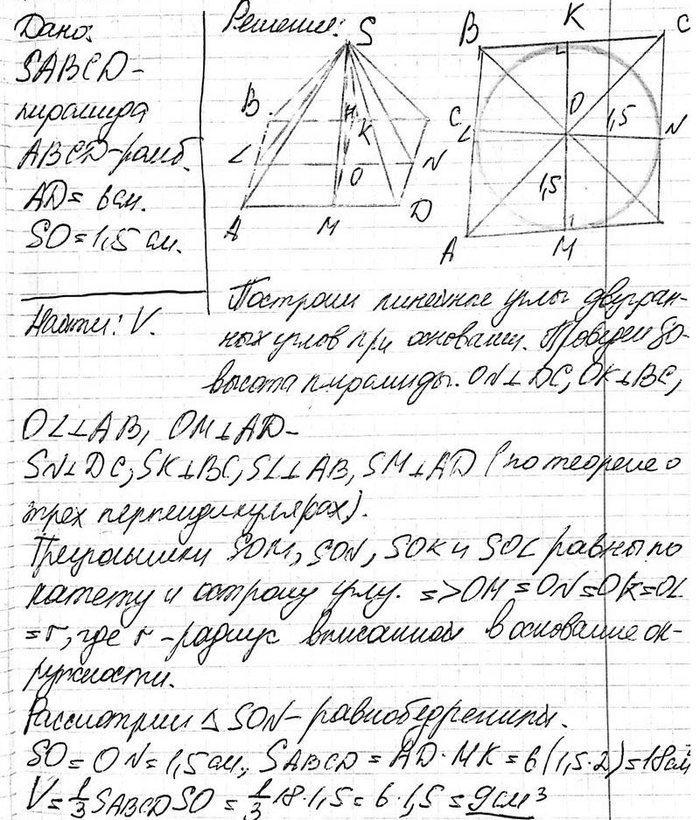 Дано:
SABCD -
пирамида
ABCD - ромб.
AD = 6 см.
SO = 1,5 см.
Найти: V.
Решение:
S
B
H
K
C
L
O
N
A
M
D
B
K
C
O
1,5
L
N
1,5
A
M
Построим линейные углы двугран-
ных углов при основании. Проведем SO-
высота пирамиды. ON⊥DC, OK⊥BC,
OL⊥AB, OM⊥AD -
SN⊥DC, SK⊥BC, SL⊥AB, SM⊥AD (по теореме о
трех перпендикулярах).
Треугольники SOM, SON, SOK и SOL равны по
катету и острому углу. => OM = ON = OK = OL
= r, где r - радиус вписанной в основание ок-
ружности.
Рассмотрим △ SON - равнобедренный.
SO = ON = 1,5 см, SABCD = AD · MK = 6(1,5·2) = 18 см
V = 1/3 SABCD SO = 1/3 18 · 1,5 = 6 · 1,5 = 9 см³